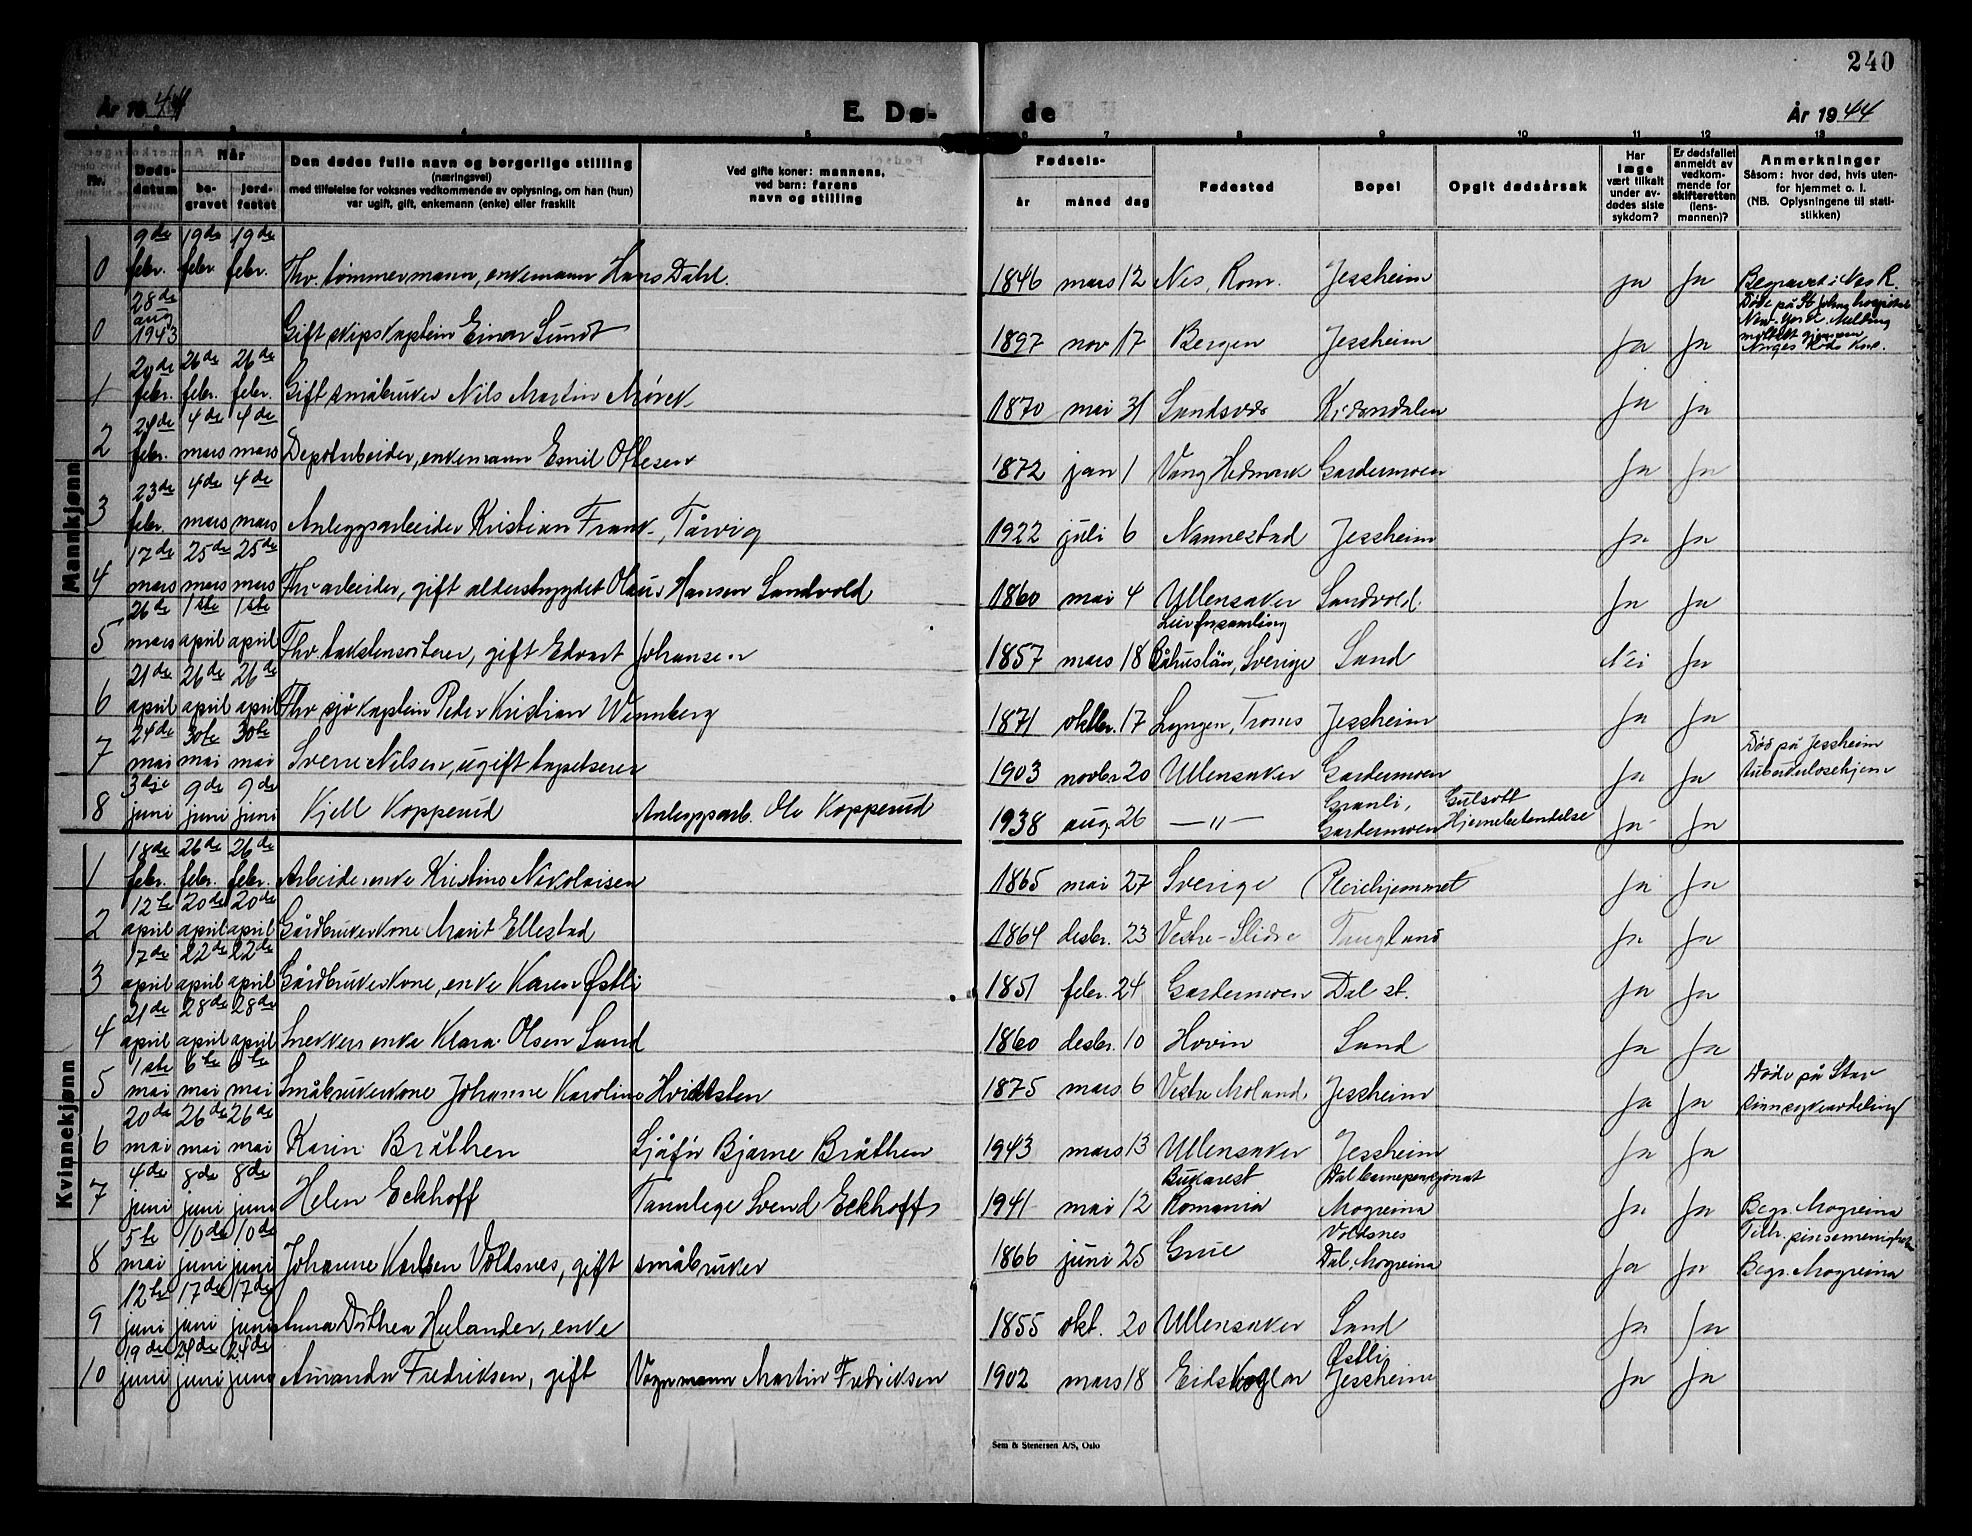 240
År 1944 E. Dø- de År 1944
1 2 3 4 5 6 7 8 9 10 11 12 13
Nr.
Døds-
datum
Når
be-
gravet
jord-
festet
Den dødes fulle navn og borgerlige stilling
(næringsvei)
med tilføielse for voksnes vedkommende av oplysning, om han (hun)
var ugift, gift, enkemann (enke) eller fraskilt
Ved gifte koner: mannens,
ved barn: farens
navn og stilling
Fødsels-
år måned dag
Fødested
Bopel
Opgit dødsårsak
Har
læge
vært tilkalt
under av-
dødes siste
sykdom?
Er dødsfallet
anmeldt av
vedkom-
mende for
skifteretten
(lens-
mannen)?
Anmerkninger
Såsom: hvor død, hvis uten-
for hjemmet o. l.
(NB. Oplysningene til stati-
stikken)
Mannkjønn
9de 19de 19de
0 febr. febr. febr. Thv. tømmermann, enkemann Hans Dahl. 1846 mars 12 Nes, Rom. Jessheim ja ja Begravet i Nes R.
28de
aug
0 1943 Gift skipskaptein Einar Sundt 1897 nov 17 Bergen Jessheim ja ja
Døde på St. Johns hospital
New-York. Melding
meddelt gjennem
Norges Røde Kors.
20de 26de 26de
1 febr. febr. febr. Gift småbruker Nils Martin Mørck 1870 mai 31 Sandsvær ja ja
24de 4de 4de
2 febr. mars mars Depotarbeider, enkemann Emil Ottesen 1872 jan 1 Vang Hedmark Gardermoen ja ja
23de 4de 4de
3 febr. mars mars Anleggsarbeider Kristian Frank Tårvig 1922 juli 6 Nannestad Jessheim ja ja
17de 25de 25de
4 mars mars mars Thv arbeider, gift alderstrygdet Olaus Hansen Sandvold 1860 mai 4 Ullensaker Sandvold. ja ja
26de 1ste 1ste
5 mars april april Thv. gift Edvart Johansen 1857 mars 18 Båhuslän, Sverige Sand Nei ja
21de 26de 26de
6 april april april Thv sjøkaptein Peder Kristian Wennberg 1871 oktbr. 17 Lyngen, Troms Jessheim ja ja
24de 30te 30te
7 mai mai mai Sverre Nilsen, ugift tapetserer 1903 novbr 20 Ullensaker Gardermoen ja ja
Død på Jessheim
tuberkulosehjem
3dje 9de 9de
8 juni juni juni Kjell Kopperud Anleggsarb. Ole Kopperud 1938 aug. 26 —"—
Granli,
Gardermoen
Gulsott
Hjernebetendelse ja ja
Kvinnekjønn
18de 26de 26de
1 febr. febr. febr. Arbeiderenke Kristine Nikolaisen 1865 mai 27 Sverige Pleiehjemmet ja ja
12te 20de 20de
2 april april april Gårdbrukerkone Marit Ellestad 1864 desbr. 23 Vestre-Slidre Taugland ja ja
17de 22de 22de
3 april april april Gårdbrukerkone, enke Karen Østli 1851 febr. 24 Gardermoen Dal st. ja ja
21de 28de 28de
4 april april april Snekkers enke Klara Olsen Sand 1860 desbr. 10 Hovin Sand ja ja
1ste 6te 6te
5 mai mai mai Småbrukerkone Johanne Karoline Hvidtsten 1875 mars 6 Vestre Moland. Jessheim ja ja
Døde på Stav
sinnsykeavdeling
20de 26de 26de
6 mai mai mai Karin Bråthen Sjåfør Bjarne Bråthen 1943 mars 13 Ullensaker Jessheim ja ja
4de 8de 8de
7 juni juni juni Helen Eckhoff Tannlege Svend Eckhoff 1941 mai 12
Bukarest
Romania
Dal barnepensjonat
Mogreina ja ja Begr. Mogreina
5te 10de 10de
8 mai juni juni Johanne Karlsen Voldsnes, gift småbruker 1866 juni 25 Grue
Voldsnes
Dal, Mogreina ja ja
Tilh. pinsemenigheten
Begr. Mogreina
12te 17de 17de
9 juni juni juni Anna Dorthea Hulander, enke 1855 okt. 20 Ullensaker Sand ja ja
19de 24de 24de
10 juni juni juni Amanda Fredriksen, gift Vognmann Martin Fredriksen 1902 mars 18 Eidskog
Østli
Jessheim ja ja
Sem & Stenersen A/S, Oslo